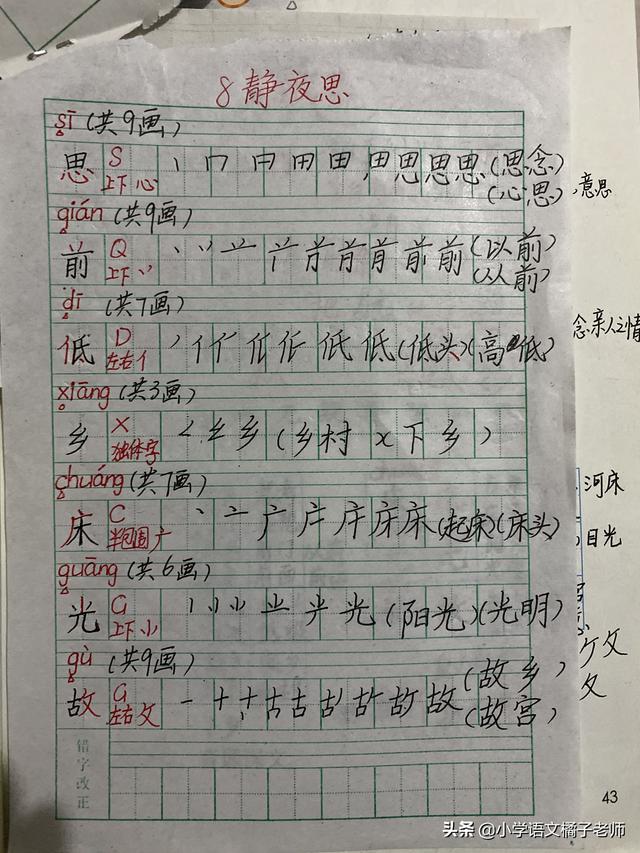 8 静夜思
sī (共9画)
思 S 上下 心 丨 冂 日 田 田 思 思 思 思 (思念)
(心思) , 意思
qián (共9画)
前 Q 上下 丷 前 前 (以前)
(从前)
dī (共7画)
低 D 左右 亻 丿 亻 低 低 (低头) (高低)
念亲人之情
xiāng (共3画)
乡 X 独体字 乡 (乡村) (下乡)
chuáng (共7画)
床 C 半包围 广 丶 亠 广 床 床 (起床) (床头)
河床
目光
guāng (共6画)
光 G 上下 小 丨 光 (阳光) (光明)
gù (共9画)
故 G 左右 攵 一 十 古 古 故 故 (故乡)
(故宫)
攵
错字改正
43
头条 @小学语文橘子老师